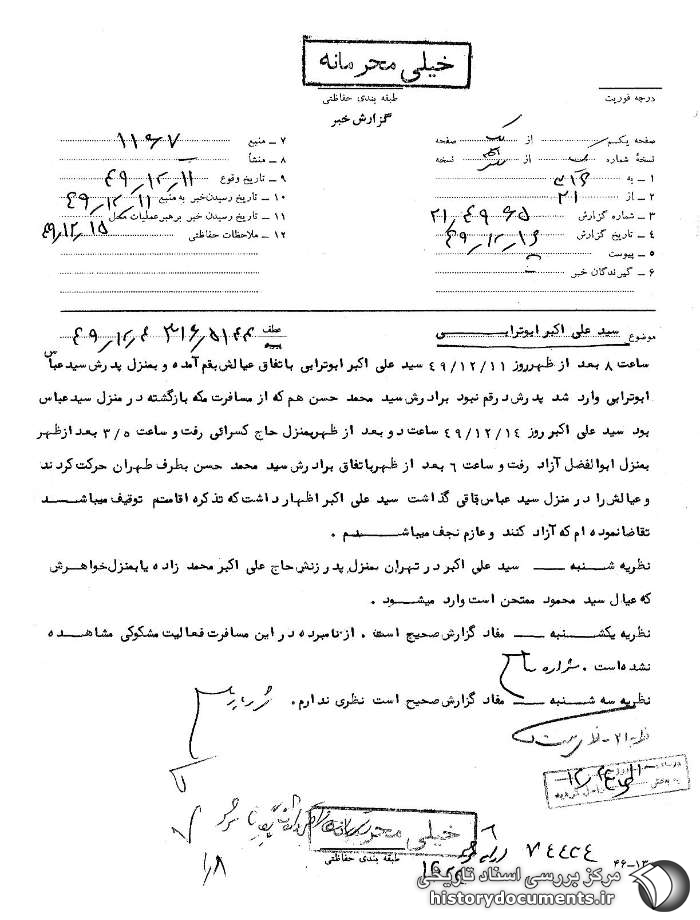 خیلی محرمانه
طبقه بندی حفاظتی
گزارش خبر
درجه فوریت
صفحه یکم از یک صفحه
نسخهٔ شماره از نسخه
۱ ـ به ۳۱۶
۲ ـ از ۲۱
۳ ـ شماره گزارش
۴ ـ تاریخ گزارش ۴۹/۱۲/۱۶
۵ ـ پیوست
۶ ـ گیرندگان خبر
۷ ـ منبع
۸ ـ منشأ
۹ ـ تاریخ وقوع ۴۹/۱۲/۱۱
۱۰ ـ تاریخ رسیدن خبر به منبع ۴۹/۱۲/۱۱
۱۱ ـ تاریخ رسیدن خبر برهبر عملیات محل ۴۹/۱۲/۱۵
۱۲ ـ ملاحظات حفاظتی
موضوع سید علی اکبر ابوترابـــی
عطف
ساعت ۸ بعد از ظهرروز ۴۹/۱۲/۱۱ سید علی اکبر ابوترابی باتفاق عیالش بقم آمده و بمنزل پدرش سید عباس
ابوترابی وارد شد پدرش درقم نبود برادرش سید محمد حسن هم که از مسافرت مکه بازگشته در منزل سیدعباس
بود سید علی اکبر روز ۴۹/۱۲/۱۴ ساعت دو بعد از ظهربمنزل حاج کسرائی رفت و ساعت ۳/۵ بعدازظهر
بمنزل ابوالفضل آزاد رفت و ساعت ۶ بعد از ظهرباتفاق برادرش سید محمد حسن بطرف طهران حرکت کردند
و عیالش را در منزل سید عباس باقی گذاشت سید علی اکبر اظهار داشت که تذکره اقامتم توقیف میباشــد
تقاضا نموده ام که آزاد کنند و عازم نجف میباشــــم ۰
نظریه شـنبه ـــ سید علی اکبر در تهران بمنزل پدر زنش حاج علی اکبر محمد زاده یا بمنزل خواهرش
که عیال سید محمود ممتحن است وارد میشــود ۰
نظریه یکشــنبه ـــ مفاد گزارش صحیح است ۰ از نامبرده در این مسافرت فعالیت مشکوکی مشاهده
نشده است ۰
نظریه سه شــنبه ـــ مفاد گزارش صحیح است نظری ندارم ۰
خیلی محرمانه
طبقه بندی حفاظتی
مرکز بررسی اسناد تاریخی
historydocuments.ir